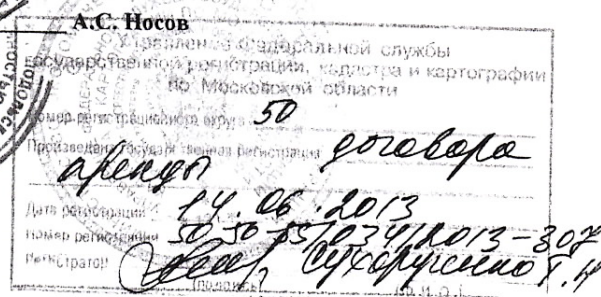 А.С. Носов
Управление Федеральной службы
государственной регистрации, кадастра и картографии
по Московской области
Номер регистрационного округа 50
Произведена государственная регистрация договора
аренды
Дата регистрации 14.06.2013
Номер регистрации 50-50-55/034/2013-307
Регистратор Сухорученко Т.
(подпись) (Ф.И.О.)